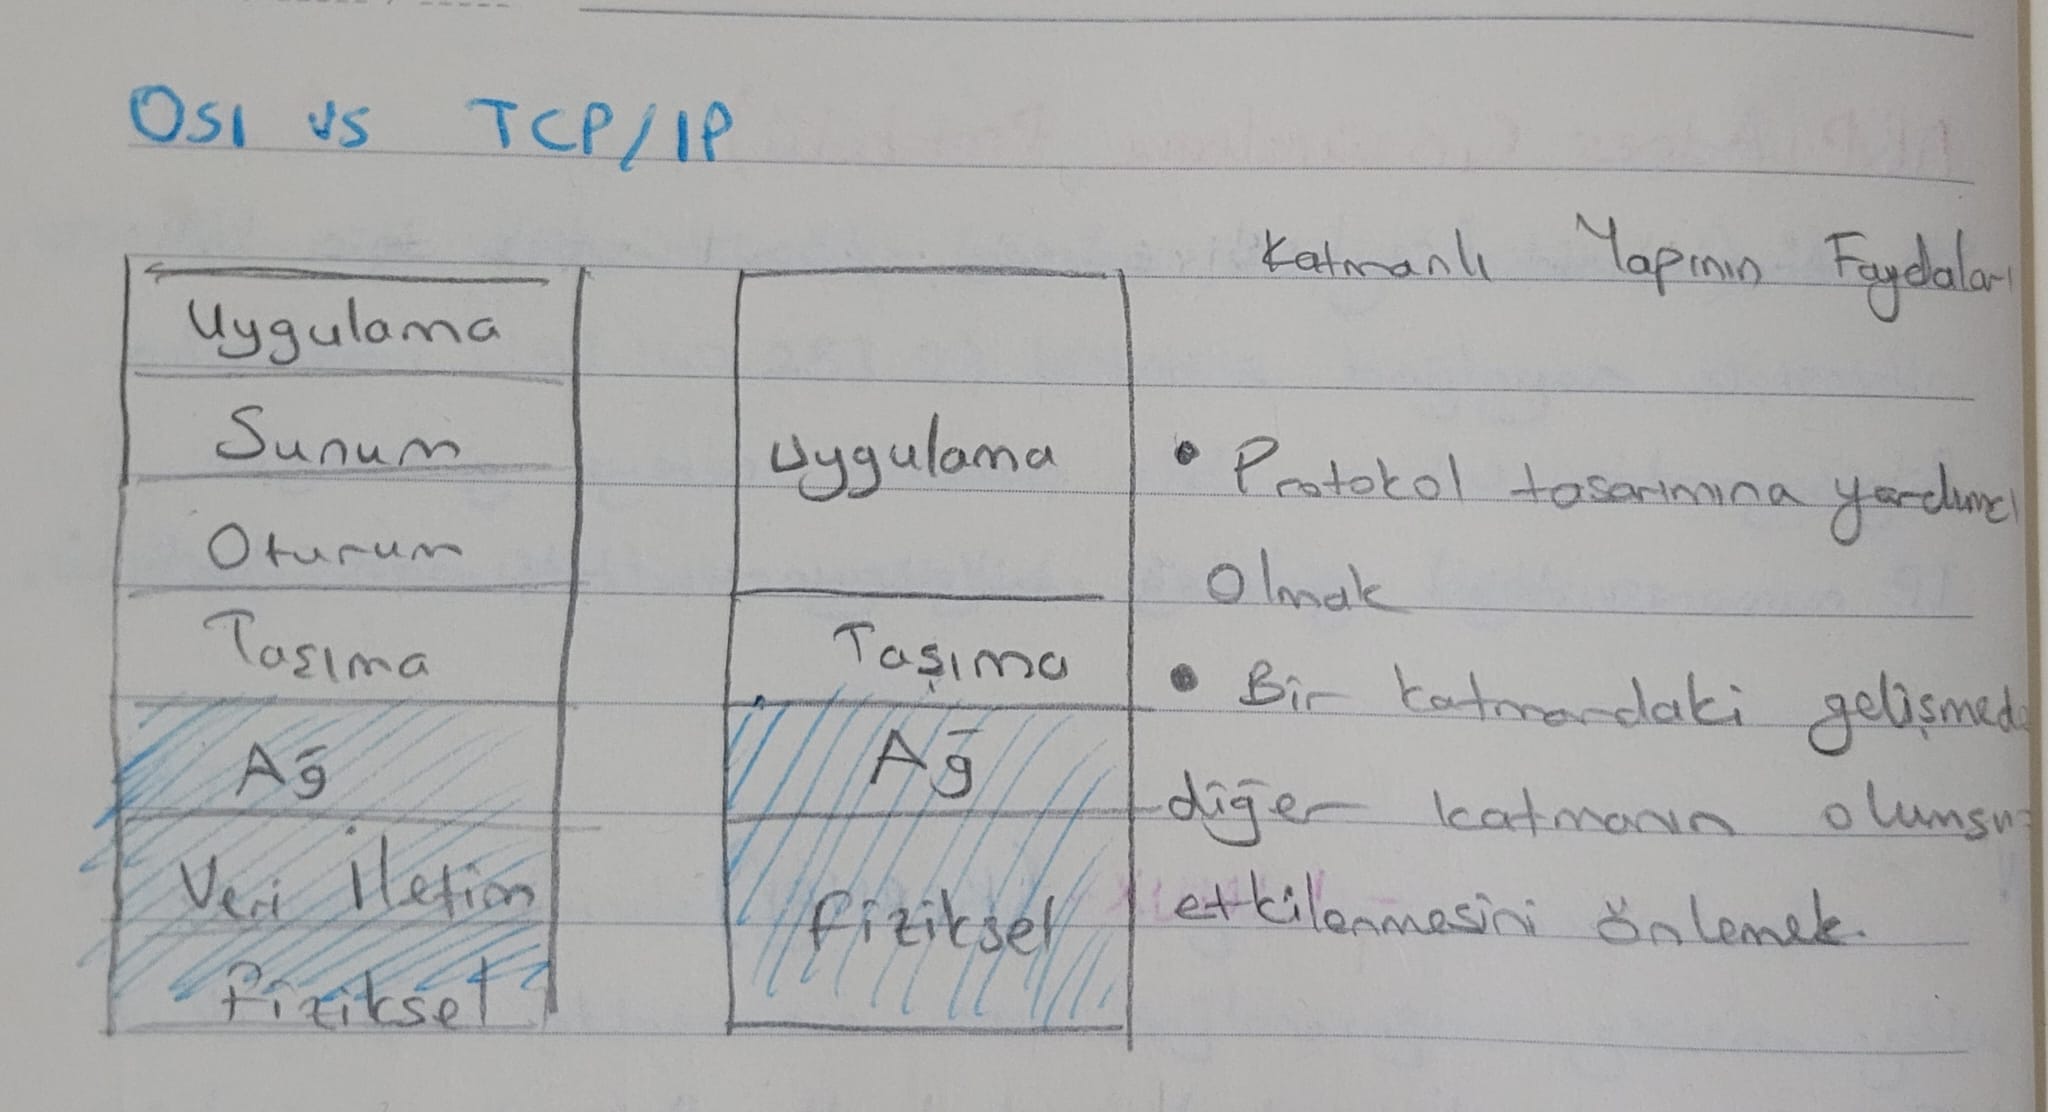 OSI vs TCP/IP
Uygulama
Sunum
Oturum
Taşıma
Ağ
Veri İletim
fiziksel
Uygulama
Taşıma
Ağ
fiziksel
Katmanlı Yapının Faydaları
• Protokol tasarımına yardımcı
Olmak
• Bir katmandaki gelişmede
diğer katmanın olumsuz
etkilenmesini önlemek.